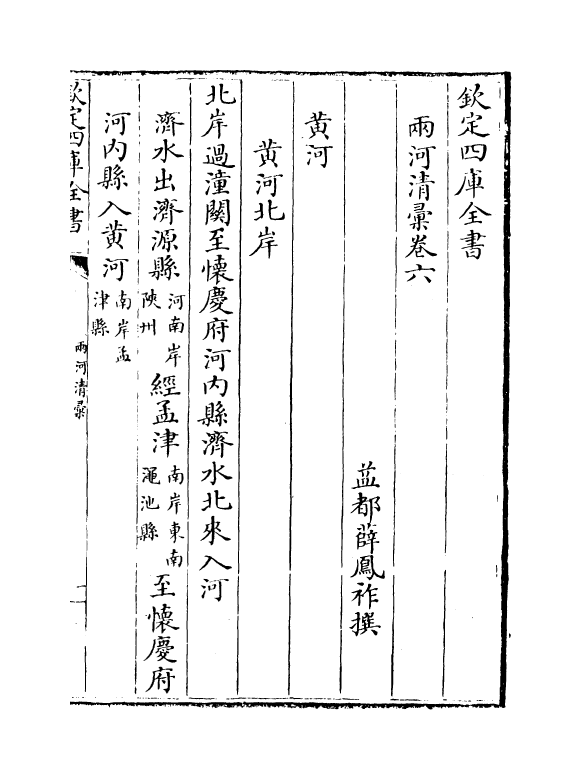 欽定四庫全書
兩河清彙卷六
益都薛鳳祚撰
黄河
黄河北岸
北岸過潼闗至懷慶府河内縣濟水北來入河
濟水出濟源縣河南岸陜州經孟津南岸東南澠池縣至懷慶府
河内縣入黄河南岸孟津縣
欽定四庫全書
兩河清彙